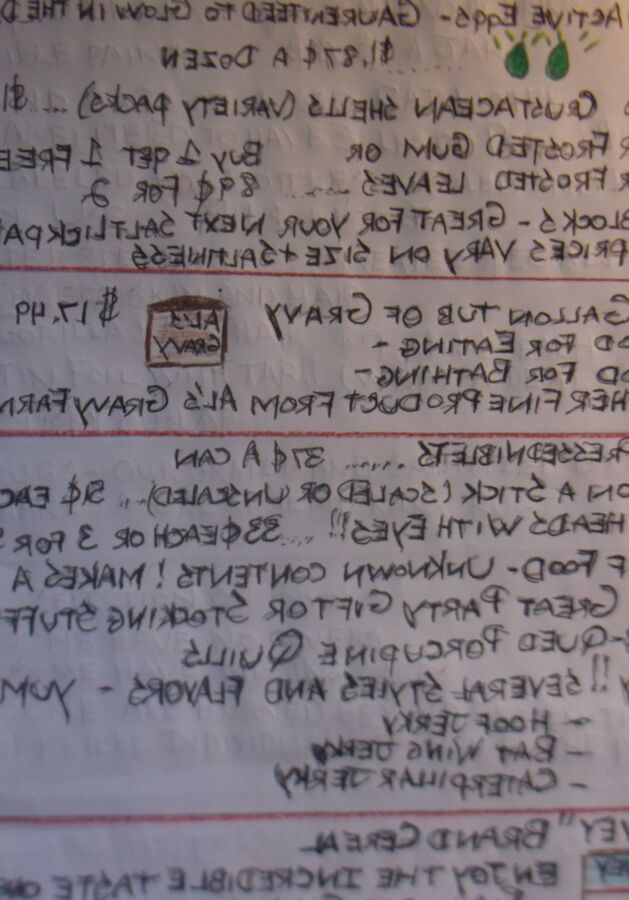 ACTIVE EGGS- GAURENTEED TO GLOW IN THE D
..... $1.87¢ A DOZEN
CRUSTACEAN SHELLS (VARIETY PACKS) .... $1
R FROSTED GUM OR BUY 1 GET 1 FREE
R FROSTED LEAVES ..... 89¢ FOR 2
BLOCKS - GREAT FOR YOUR NEXT SALTLICK PA
PRICES VARY ON SIZE + SALTINESS
GALLON TUB OF GRAVY AL'S GRAVY $17.49
OD FOR EATING -
OD FOR BATHING -
HER FINE PRODUCT FROM AL'S GRAVY FARM
PRESSED NIBLETS ..... 37¢ A CAN
ON A STICK (SCALED OR UNSCALED)... 51¢ EAC
HEADS WITH EYES!! .... 33¢ EACH OR 3 FOR
F FOOD - UNKNOWN CONTENTS! MAKES A
GREAT PARTY GIFT OR STOCKING STUFF
-QUED PORCUPINE QUILLS
Y!! SEVERAL STYLES AND FLAVORS - YUM
- HOOF JERKY
- BAT WING JERKY
- CATERPILLAR JERKY
VEY" BRAND CEREAL
ENJOY THE INCREDIBLE TASTE OF